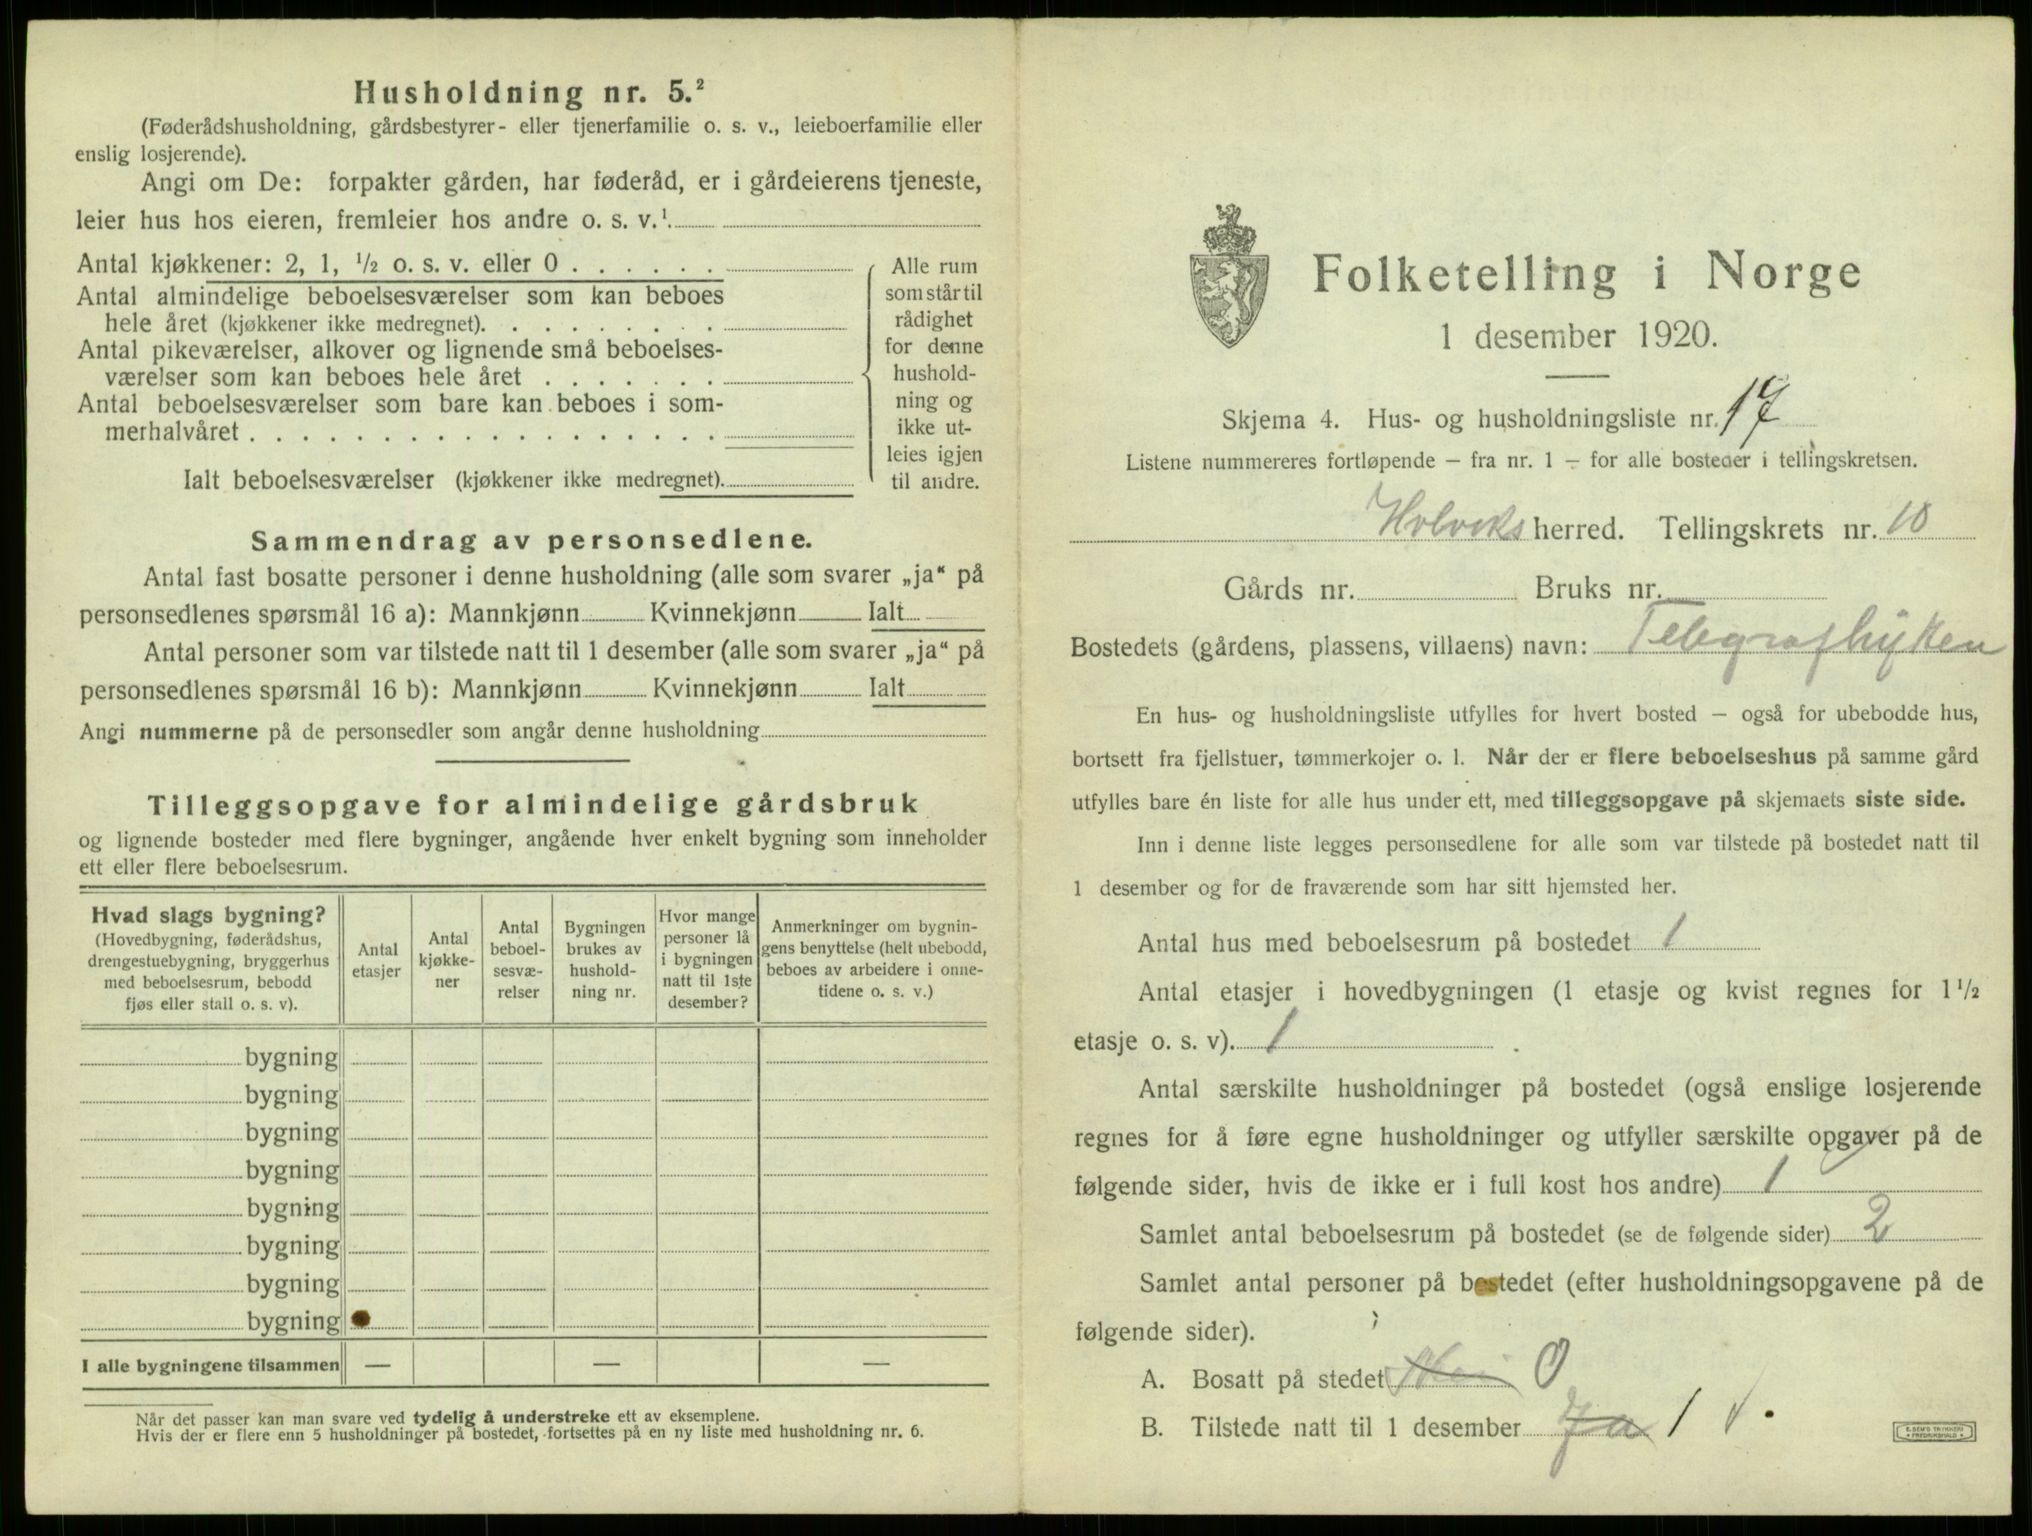 Husholdning nr. 5.²
(Føderådshusholdning, gårdsbestyrer- eller tjenerfamilie o. s. v., leieboerfamilie eller
enslig losjerende).
Angi om De: forpakter gården, har føderåd, er i gårdeierens tjeneste,
leier hus hos eieren, fremleier hos andre o. s. v.¹
Antal kjøkkener: 2, 1, ½ o. s. v. eller 0 . . . . . .
Antal almindelige beboelsesværelser som kan beboes
hele året (kjøkkener ikke medregnet). . . . . . . . .
Antal pikeværelser, alkover og lignende små beboelses-
værelser som kan beboes hele året . . . . . . .
Antal beboelsesværelser som bare kan beboes i som-
merhalvåret . . . . . . . . . . . . . . . . . .
Ialt beboelsesværelser (kjøkkener ikke medregnet).
Alle rum
som står til
rådighet
for denne
hushold-
ning og
ikke ut-
leies igjen
til andre.
Sammendrag av personsedlene.
Antal fast bosatte personer i denne husholdning (alle som svarer „ja“ på
personsedlenes spørsmål 16 a): Mannkjønn Kvinnekjønn Ialt
Antal personer som var tilstede natt til 1 desember (alle som svarer „ja“ på
personsedlenes spørsmål 16 b): Mannkjønn Kvinnekjønn Ialt
Angi nummerne på de personsedler som angår denne husholdning
Tilleggsopgave for almindelige gårdsbruk
og lignende bosteder med flere bygninger, angående hver enkelt bygning som inneholder
ett eller flere beboelsesrum.
Hvad slags bygning?
(Hovedbygning, føderådshus,
drengestuebygning, bryggerhus
med beboelsesrum, bebodd
fjøs eller stall o. s. v).
Antal
etasjer
Antal
kjøkke-
ner
Antal
beboel-
sesvæ-
relser
Bygningen
brukes av
hushold-
ning nr.
Hvor mange
personer lå
i bygningen
natt til 1ste
desember?
Anmerkninger om bygnin-
gens benyttelse (helt ubebodd,
beboes av arbeidere i onne-
tidene o. s. v.)
bygning
bygning
bygning
bygning
bygning
bygning
bygning
bygning
I alle bygningene tilsammen — — —
Når det passer kan man svare ved tydelig å understreke ett av eksemplene.
Hvis der er flere enn 5 husholdninger på bostedet, fortsettes på en ny liste med husholdning nr. 6.
Folketelling i Norge
1 desember 1920.
Skjema 4. Hus- og husholdningsliste nr. 17
Listene nummereres fortløpende – fra nr. 1 – for alle bosteder i tellingskretsen.
herred. Tellingskrets nr. 10
Gårds nr. Bruks nr.
Bostedets (gårdens, plassens, villaens) navn: Telegrafhytten
En hus- og husholdningsliste utfylles for hvert bosted – også for ubebodde hus,
bortsett fra fjellstuer, tømmerkojer o. l. Når der er flere beboelseshus på samme gård
utfylles bare én liste for alle hus under ett, med tilleggsopgave på skjemaets siste side.
Inn i denne liste legges personsedlene for alle som var tilstede på bostedet natt til
1 desember og for de fraværende som har sitt hjemsted her.
Antal hus med beboelsesrum på bostedet 1
Antal etasjer i hovedbygningen (1 etasje og kvist regnes for 1½
etasje o. s. v). 1
Antal særskilte husholdninger på bostedet (også enslige losjerende
regnes for å føre egne husholdninger og utfyller særskilte opgaver på de
følgende sider, hvis de ikke er i full kost hos andre) 1
Samlet antal beboelsesrum på bostedet (se de følgende sider) 2
Samlet antal personer på bostedet (efter husholdningsopgavene på de
følgende sider).
A. Bosatt på stedet 0
B. Tilstede natt til 1 desember Ja 1
E. SEM'S TRYKKERI
• FREDRIKSHALD •